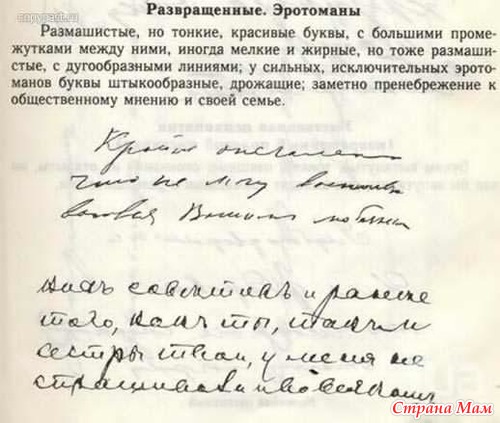 copypast.ru
Развращенные. Эротоманы
Размашистые, но тонкие, красивые буквы, с большими проме-
жутками между ними, иногда мелкие и жирные, но тоже размаши-
стые, с дугообразными линиями; у сильных, исключительных эрото-
манов буквы штыкообразные, дрожащие; заметно пренебрежение к
общественному мнению и своей семье.
Крайне
что не могу
Вашим
какъ советникъ и ранее
того, какъ ты,
сестры твои, у меня не
Страна Мам